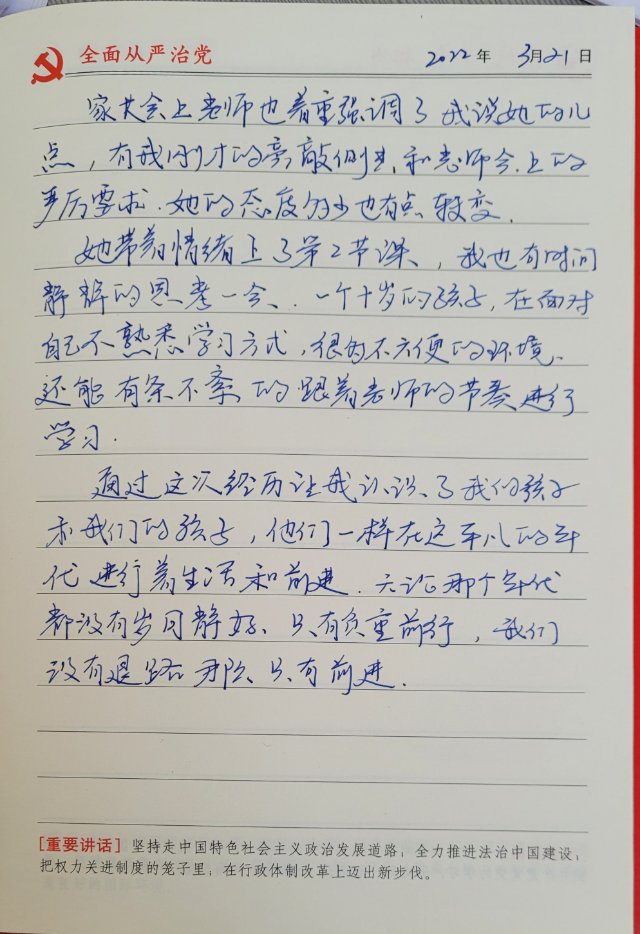 全面从严治党
2022年 3月21日
家长会上老师也着重强调了我说她的几
点，有我刚才的旁敲侧击，和老师会上的
严厉要求．她的态度多少也有点转变．
她带着情绪上了第2节课、，我也有时间
静静的思考一会、．一个十岁的孩子，在面对
自己不熟悉学习方式，很的不方便的环境、
还能有条不紊的跟着老师的节奏进行
学习．
通过这次经历让我认识、了我们孩子
和我们的孩子，他们一样在这平凡的年
代进行着生活和前进．无论那个年代
都没有岁月静好、只有负重前行，我们
没有退路 那、只有前进．
[重要讲话] 坚持走中国特色社会主义政治发展道路，全力推进法治中国建设，
把权力关进制度的笼子里，在行政体制改革上迈出新步伐。